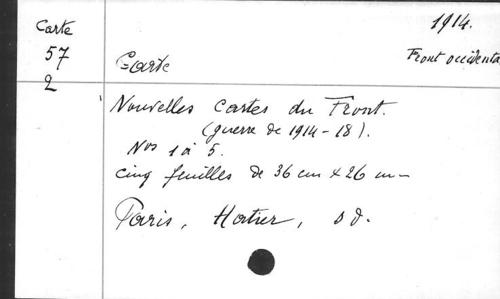 Carte
57
2
1914.
Front occidental
Carte
Nouvelles cartes du Front.
(guerre de 1914-18).
Nos 1 à 5.
cinq feuilles de 36 cm x 26 cm
Paris, Hatier, sd.